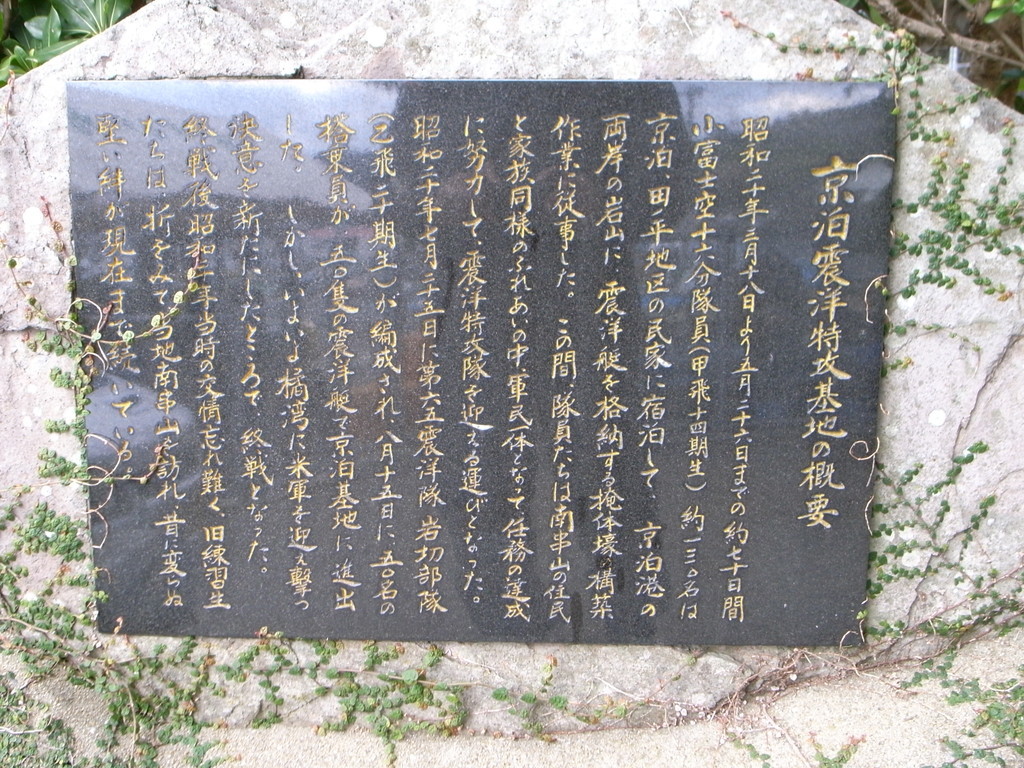 京泊震洋特攻基地の概要
昭和二十年三月十八日より五月二十六日までの約七十日間
小富士空十六分隊員(甲飛十四期生)約一三〇名は
京泊、田ノ平地区の民家に宿泊して、京泊港の
両岸の岩山に、震洋艇を格納する掩体壕の構築
作業に従事した。この間、隊員たちは南串山の住民
と家族同様のふれあいの中、軍民一体となって任務の達成
に努力して、震洋特攻隊を迎える運びとなった。
昭和二十年七月二十五日に第六五震洋隊岩切部隊
(乙飛二十期生)が編成され、八月十五日に、五〇名の
搭乗員が五〇隻の震洋艇で京泊基地に進出
した。しかし、いよいよ橘湾に米軍を迎え撃つ
決意を新たにしたところで、終戦となった。
終戦後昭和二十年当時の交情忘れ難く旧練習生
たちは折をみて当地南串山を訪れ昔に変らぬ
堅い絆が現在まで続いている。